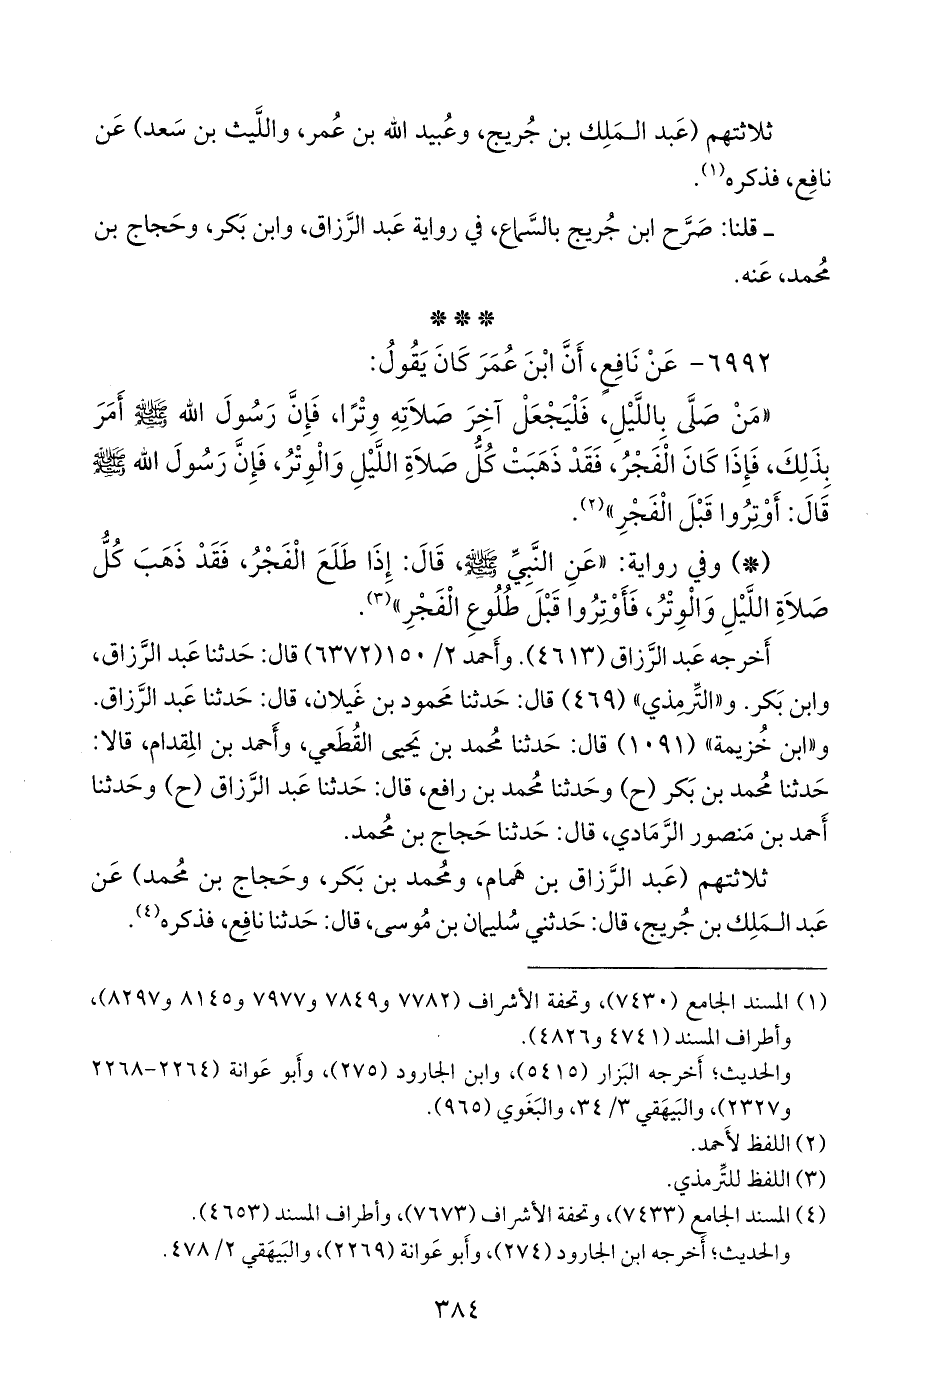 ثلاثتهم (عَبد الـمَلِك بن جُريج، وعُبيد الله بن عُمر، واللَّيث بن سَعد) عَن
نافِع، فذكره(١).
ـ قلنا: صَرَّح ابن جُريج بالسَّماع، في رواية عَبد الرَّزاق، وابن بَكر، وحَجاج بن
مُحمد، عَنه.
***
٦٩٩٢- عَنْ نَافِعٍ، أَنَّ ابْنَ عُمَرَ كَانَ يَقُولُ:
«مَنْ صَلَّى بِاللَّيْلِ، فَلْيَجْعَلْ آخِرَ صَلَاتِهِ وِتْرًا، فَإِنَّ رَسُولَ الله ﷺ أَمَرَ
بِذَلِكَ، فَإِذَا كَانَ الْفَجْرُ، فَقَدْ ذَهَبَتْ كُلُّ صَلَاةِ اللَّيْلِ وَالْوِتْرُ، فَإِنَّ رَسُولَ الله ﷺ
قَالَ: أَوْتِرُوا قَبْلَ الْفَجْرِ»(٢).
(*) وفي رواية: «عَنِ النَّبِيِّ ﷺ، قَالَ: إِذَا طَلَعَ الْفَجْرُ، فَقَدْ ذَهَبَ كُلُّ
صَلَاةِ اللَّيْلِ وَالْوِتْرُ، فَأَوْتِرُوا قَبْلَ طُلُوعِ الْفَجْرِ»(٣).
أَخرجه عَبد الرَّزاق (٤٦١٣). وأَحمد ٢/ ١٥٠(٦٣٧٢) قال: حَدثنا عَبد الرَّزاق،
وابن بَكر. و«التِّرمِذي» (٤٦٩) قال: حَدثنا مَحمود بن غَيلان، قال: حَدثنا عَبد الرَّزاق.
و«ابن خُزيمة» (١٠٩١) قال: حَدثنا مُحمد بن يَحيى القُطَعي، وأَحمد بن المِقدام، قالا:
حَدثنا مُحمد بن بَكر (ح) وحَدثنا مُحمد بن رافع، قال: حَدثنا عَبد الرَّزاق (ح) وحَدثنا
أَحمد بن مَنصور الرَّمادي، قال: حَدثنا حَجاج بن مُحمد.
ثلاثتهم (عَبد الرَّزاق بن هَمام، ومُحمد بن بَكر، وحَجاج بن مُحمد) عَن
عَبد الـمَلِك بن جُريج، قال: حَدثني سُليمان بن مُوسى، قال: حَدثنا نافِع، فذكره(٤).
(١) المسند الجامع (٧٤٣٠)، وتحفة الأشراف (٧٧٨٢ و٧٨٤٩ و٧٩٧٧ و٨١٤٥ و٨٢٩٧)،
وأطراف المسند (٤٧٤١ و٤٨٢٦).
والحديث؛ أَخرجه البَزار (٥٤١٥)، وابن الجارود (٢٧٥)، وأَبو عَوانة (٢٢٦٤-٢٢٦٨
و٢٣٢٧)، والبَيهَقي ٣/ ٣٤، والبَغَوي (٩٦٥).
(٢) اللفظ لأَحمد.
(٣) اللفظ للتِّرمذي.
(٤) المسند الجامع (٧٤٣٣)، وتحفة الأشراف (٧٦٧٣)، وأطراف المسند (٤٦٥٣).
والحديث؛ أَخرجه ابن الجارود (٢٧٤)، وأَبو عَوانة (٢٢٦٩)، والبَيهَقي ٢/ ٤٧٨.
٣٨٤